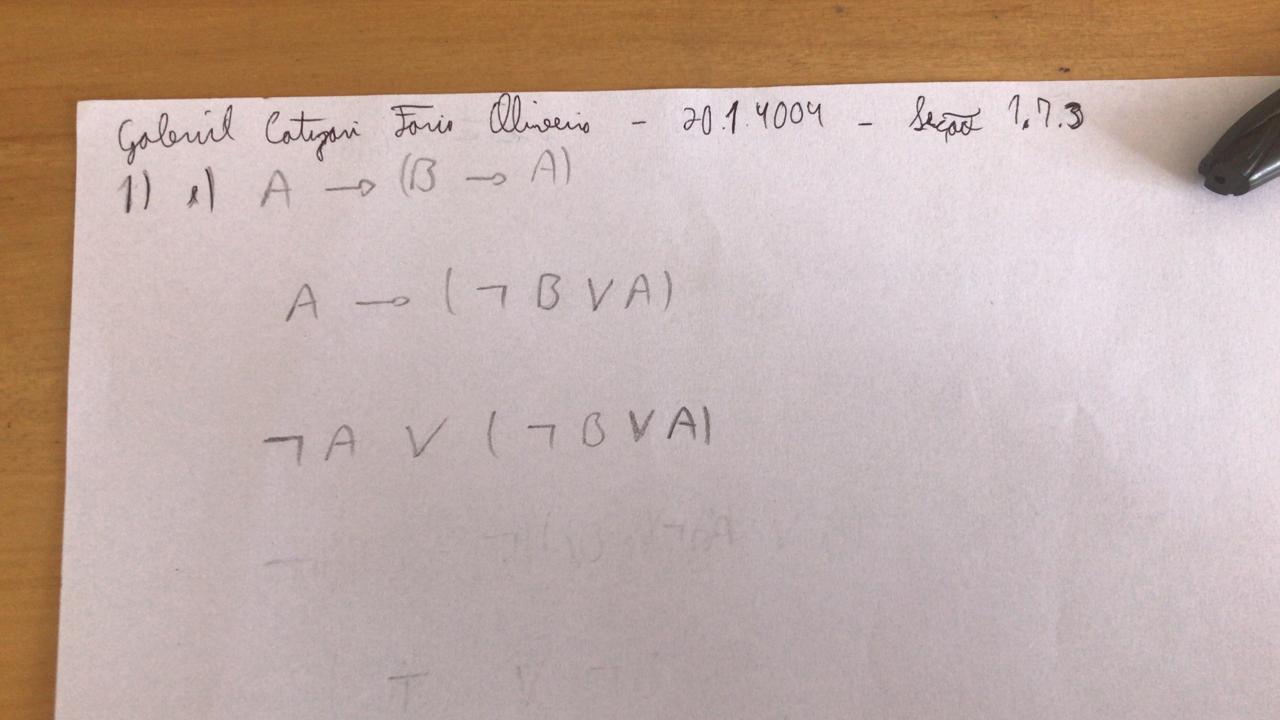 Gabriel Catizani Faria Oliveira - 20.1.4004 - Seção 1.7.3
1) e) A → (B → A)
A → (¬ B V A)
¬ A V (¬ B V A)